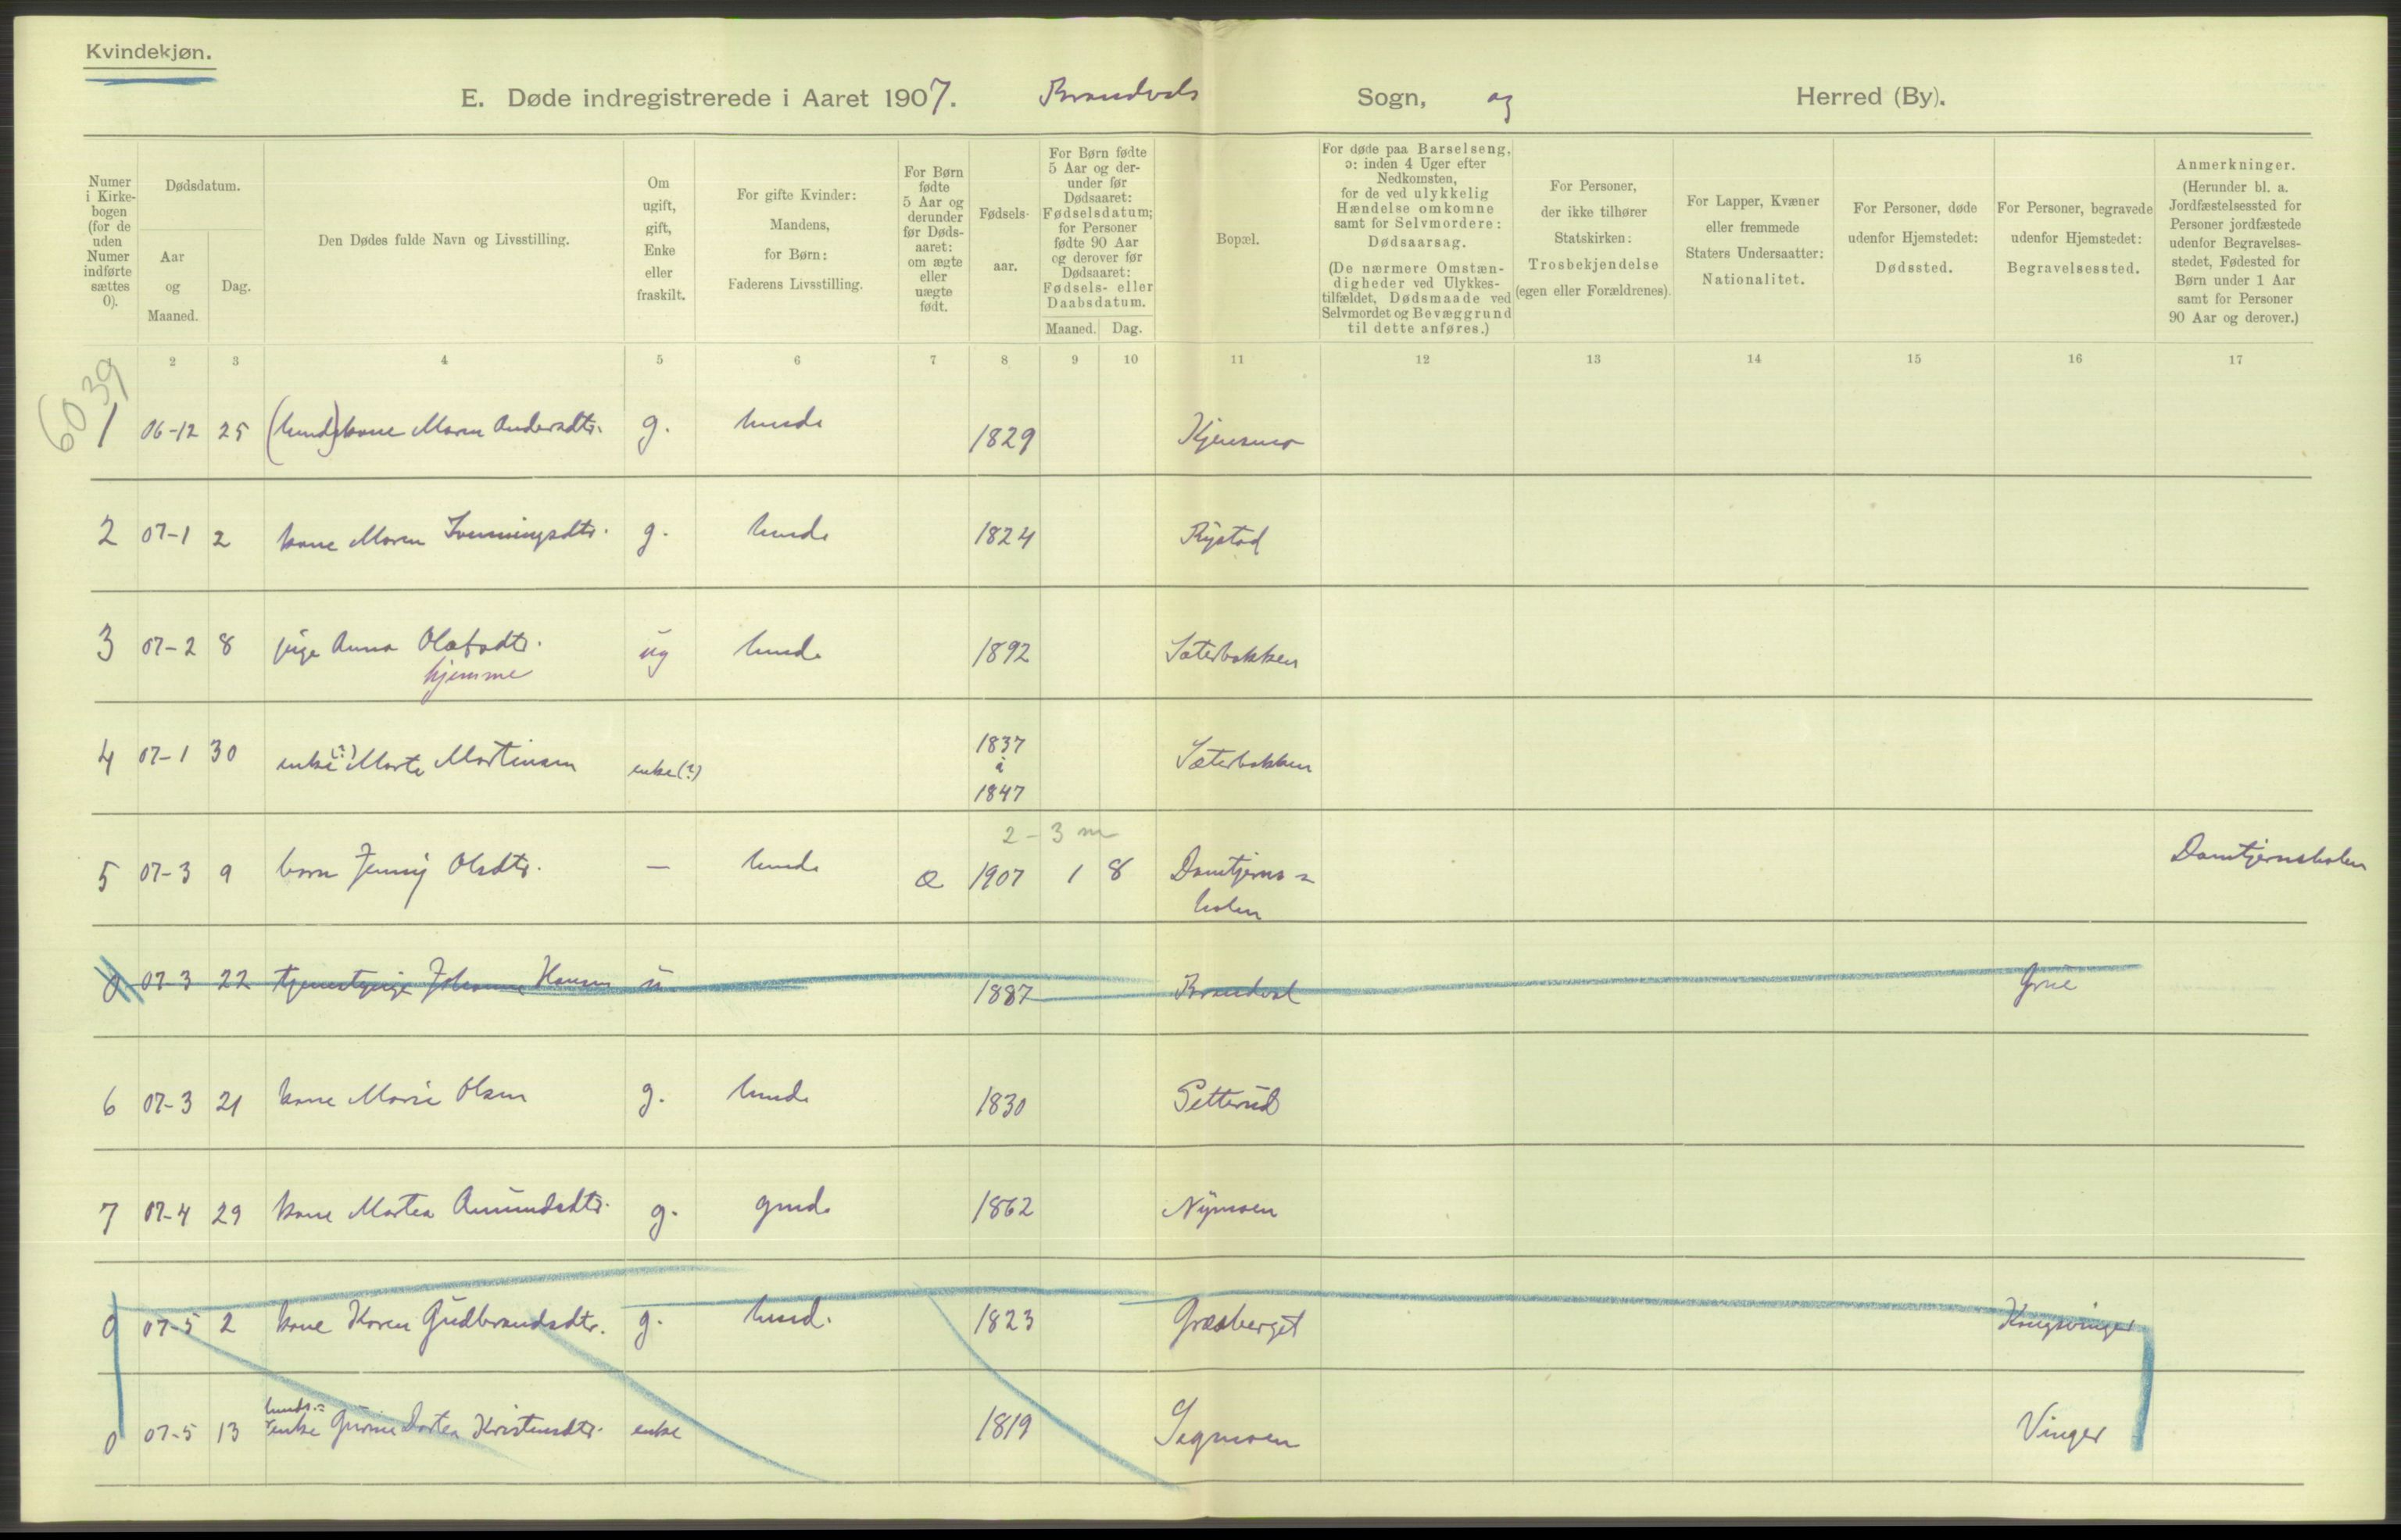 Kvindekjøn.
E. Døde indregistrerede i Aaret 1907. Brandvals Sogn, og Herred (By).
Numer i Kirke-bogen (for de uden Numer indførte sættes 0).
Dødsdatum.
Aar og Maaned.
Dag.
Den Dødes fulde Navn og Livsstilling.
Om ugift, gift, Enke eller fraskilt.
For gifte Kvinder: Mandens, for Børn: Faderens Livsstilling.
For Børn fødte 5 Aar og derunder før Døds-aaret: om ægte eller uægte født.
Fødsels-aar.
For Børn fødte 5 Aar og der-under før Dødsaaret: Fødselsdatum; for Personer fødte 90 Aar og derover før Dødsaaret: Fødsels- eller Daabsdatum.
Maaned. Dag.
Bopæl.
For døde paa Barselseng, ɔ: inden 4 Uger efter Nedkomsten, for de ved ulykkelig Hændelse omkomne samt for Selvmordere: Dødsaarsag. (De nærmere Omstæn-digheder ved Ulykkes-tilfældet, Dødsmaade ved Selvmordet og Bevæggrund til dette anføres.)
For Personer, der ikke tilhører Statskirken: Trosbekjendelse (egen eller Forældrenes).
For Lapper, Kvæner eller fremmede Staters Undersaatter: Nationalitet.
For Personer, døde udenfor Hjemstedet: Dødssted.
For Personer, begravede udenfor Hjemstedet: Begravelsessted.
Anmerkninger. (Herunder bl. a. Jordfæstelsessted for Personer jordfæstede udenfor Begravelses-stedet, Fødested for Børn under 1 Aar samt for Personer 90 Aar og derover.)
2 3 4 5 6 7 8 9 10 11 12 13 14 15 16 17
6039
1 06-12 25 (husds)kone Maren Andersdtr. g. husds 1829 Kjensmo
2 07-1 2 kone Maren g. husds 1824 Rystad
3 07-2 8 pige Anna Olafsdtr. ug husds 1892 Sæterbakken
hjemme
4 07-1 30 enke(?) Marte Martinsen enke(?) 1837 à 1847 Sæterbakken
2-3 m
5 07-3 9 barn Jenny Olsdtr. — husds æ 1907 1 8 Damtjerns= Damtjernsholen
holen
0 07-3 22 tjenestepige Johanne Hansen u 1887 Brandval Grue
6 07-3 21 kone Marie Olsen g. husds 1830 Setterud
7 07-4 29 kone Martea Amundsdtr. g. gmds 1862 Nymoen
0 07-5 2 kone Karen Gudbrandsdtr. g. husd. 1823 Græsberget Kongsvinger
husds.=
0 07-5 13 enke Gurine Dortea Kristensdtr. enke 1819 Sagmoen Vinger